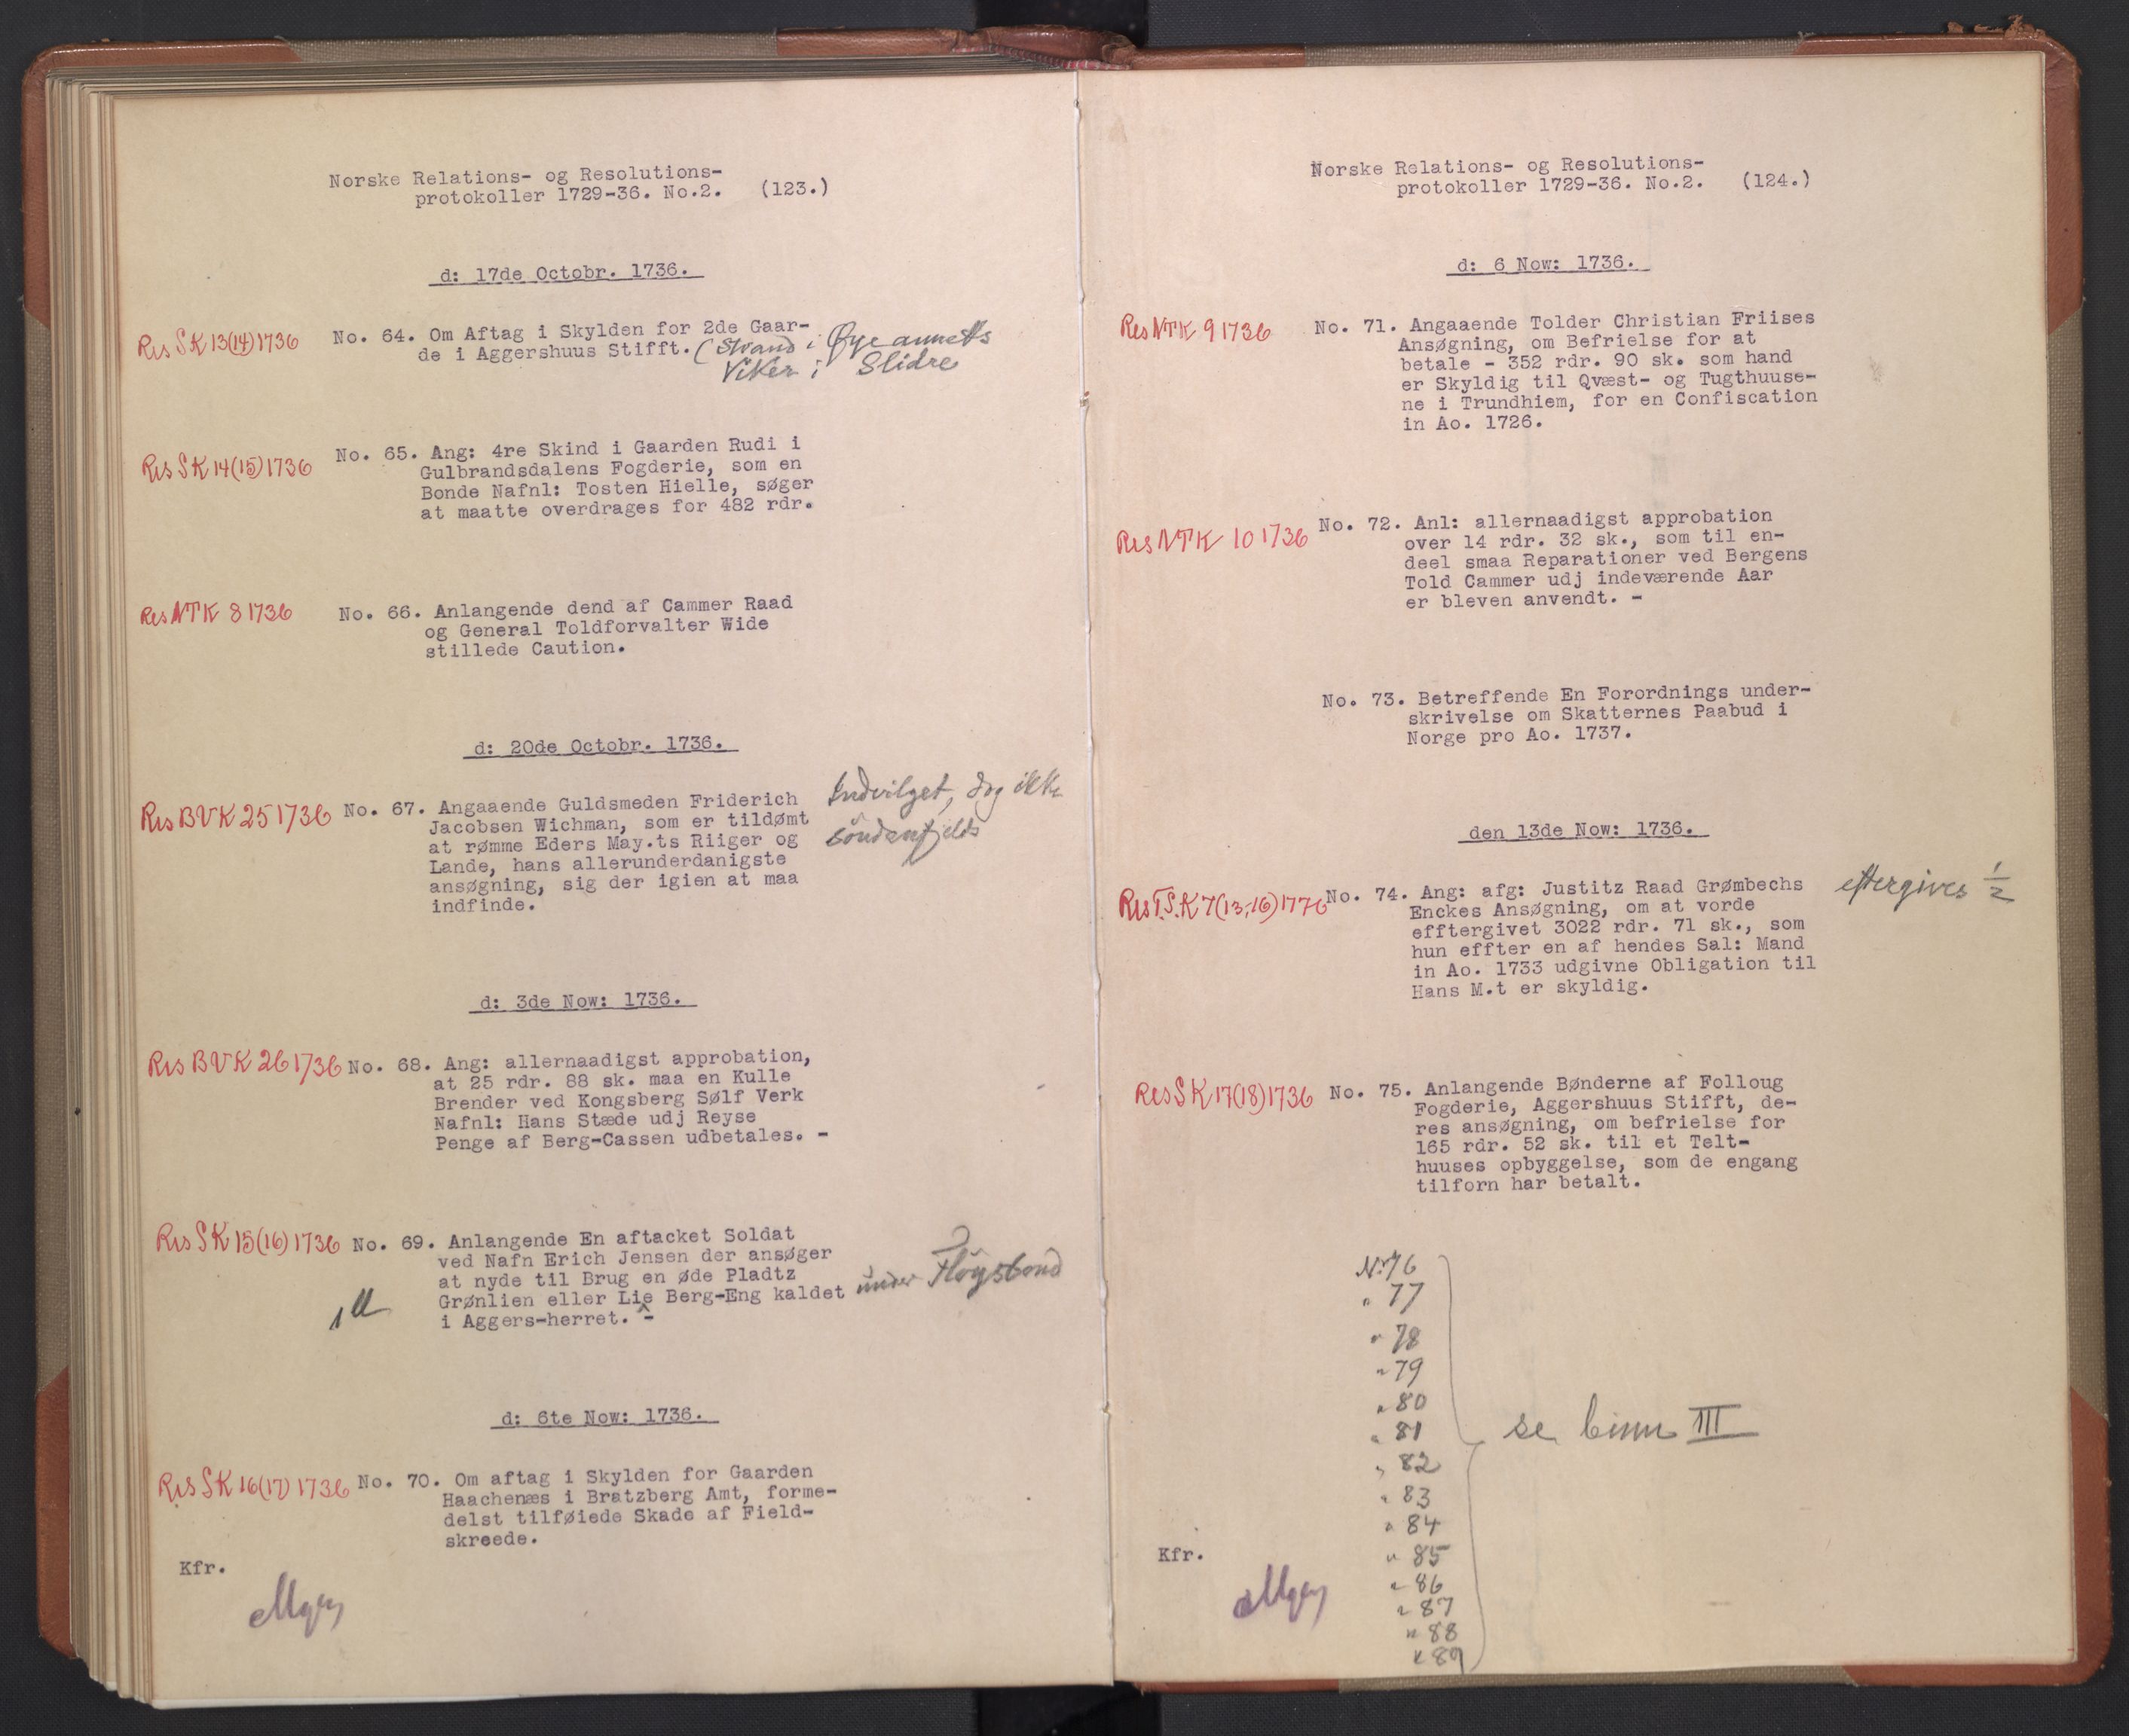 Norske Relations- og Resolutions-
protokoller 1729-36. No.2. (123.)
d: 17de Octobr. 1736.
Res SK 13(14) 1736 No. 64. Om Aftag i Skylden for 2de Gaar-
de i Aggershuus Stifft. (Strand i Øye annets
Viker i Slidre
Res SK 14(15) 1736 No. 65. Ang: 4re Skind i Gaarden Rudi i
Gulbrandsdalens Fogderie, som en
Bonde Nafnl: Tosten Hielle, søger
at maatte overdrages for 482 rdr.
Res NTK 8 1736 No. 66. Anlangende dend af Cammer Raad
og General Toldforvalter Wide
stillede Caution.
d: 20de Octobr. 1736.
Res BVK 25 1736 No. 67. Angaaende Guldsmeden Friderich
Jacobsen Wichman, som er tildømt
at rømme Eders May.ts Riiger og
Lande, hans allerunderdanigste
ansøgning, sig der igien at maa
indfinde.
Indvilget, dog ikke
söndenfjelds
d: 3de Now: 1736.
Res BVK 26 1736 No. 68. Ang: allernaadigst approbation,
at 25 rdr. 88 sk. maa en Kulle
Brender ved Kongsberg Sølf Verk
Nafnl: Hans Stæde udj Reyse
Penge af Berg-Cassen udbetales. -
Res SK 15(16) 1736 No. 69. Anlangende En aftacket Soldat
ved Nafn Erich Jensen der ansøger
at nyde til Brug en øde Pladtz
Grønlien eller Lie Berg-Eng kaldet under Fløysbond
i Aggers-herret. -
d: 6te Now: 1736.
Res SK 16(17) 1736 No. 70. Om aftag i Skylden for Gaarden
Haachenæs i Bratzberg Amt, forme-
delst tilføiede Skade af Field-
skreede.
Kfr.
Norske Relations- og Resolutions-
protokoller 1729-36. No.2. (124.)
d: 6 Now: 1736.
Res NTK 9 1736 No. 71. Angaaende Tolder Christian Friises
Ansøgning, om Befrielse for at
betale - 352 rdr. 90 sk. som hand
er Skyldig til Qvæst- og Tugthuuse-
ne i Trundhiem, for en Confiscation
in Ao. 1726.
Res NTK 10 1736 No. 72. Anl: allernaadigst approbation
over 14 rdr. 32 sk., som til en-
deel smaa Reparationer ved Bergens
Told Cammer udj indeværende Aar
er bleven anvendt. -
No. 73. Betreffende En Forordnings under-
skrivelse om Skatternes Paabud i
Norge pro Ao. 1737.
den 13de Now: 1736.
Res T.S.K 7(13,16) 1776 No. 74. Ang: afg: Justitz Raad Grømbechs eftergives 1/2
Enckes Ansøgning, om at vorde
efftergivet 3022 rdr. 71 sk., som
hun effter en af hendes Sal: Mand
in Ao. 1733 udgivne Obligation til
Hans M.t er skyldig.
Res SK 17(18) 1736 No. 75. Anlangende Bønderne af Folloug
Fogderie, Aggershuus Stifft, de-
res ansøgning, om befrielse for
165 rdr. 52 sk. til et Telt-
huuses opbyggelse, som de engang
tilforn har betalt.
Nr 76
" 77
" 78
" 79
" 80
" 81 se III
" 82
" 83
" 84
" 85
" 86
" 87
" 88
" 89
Kfr.